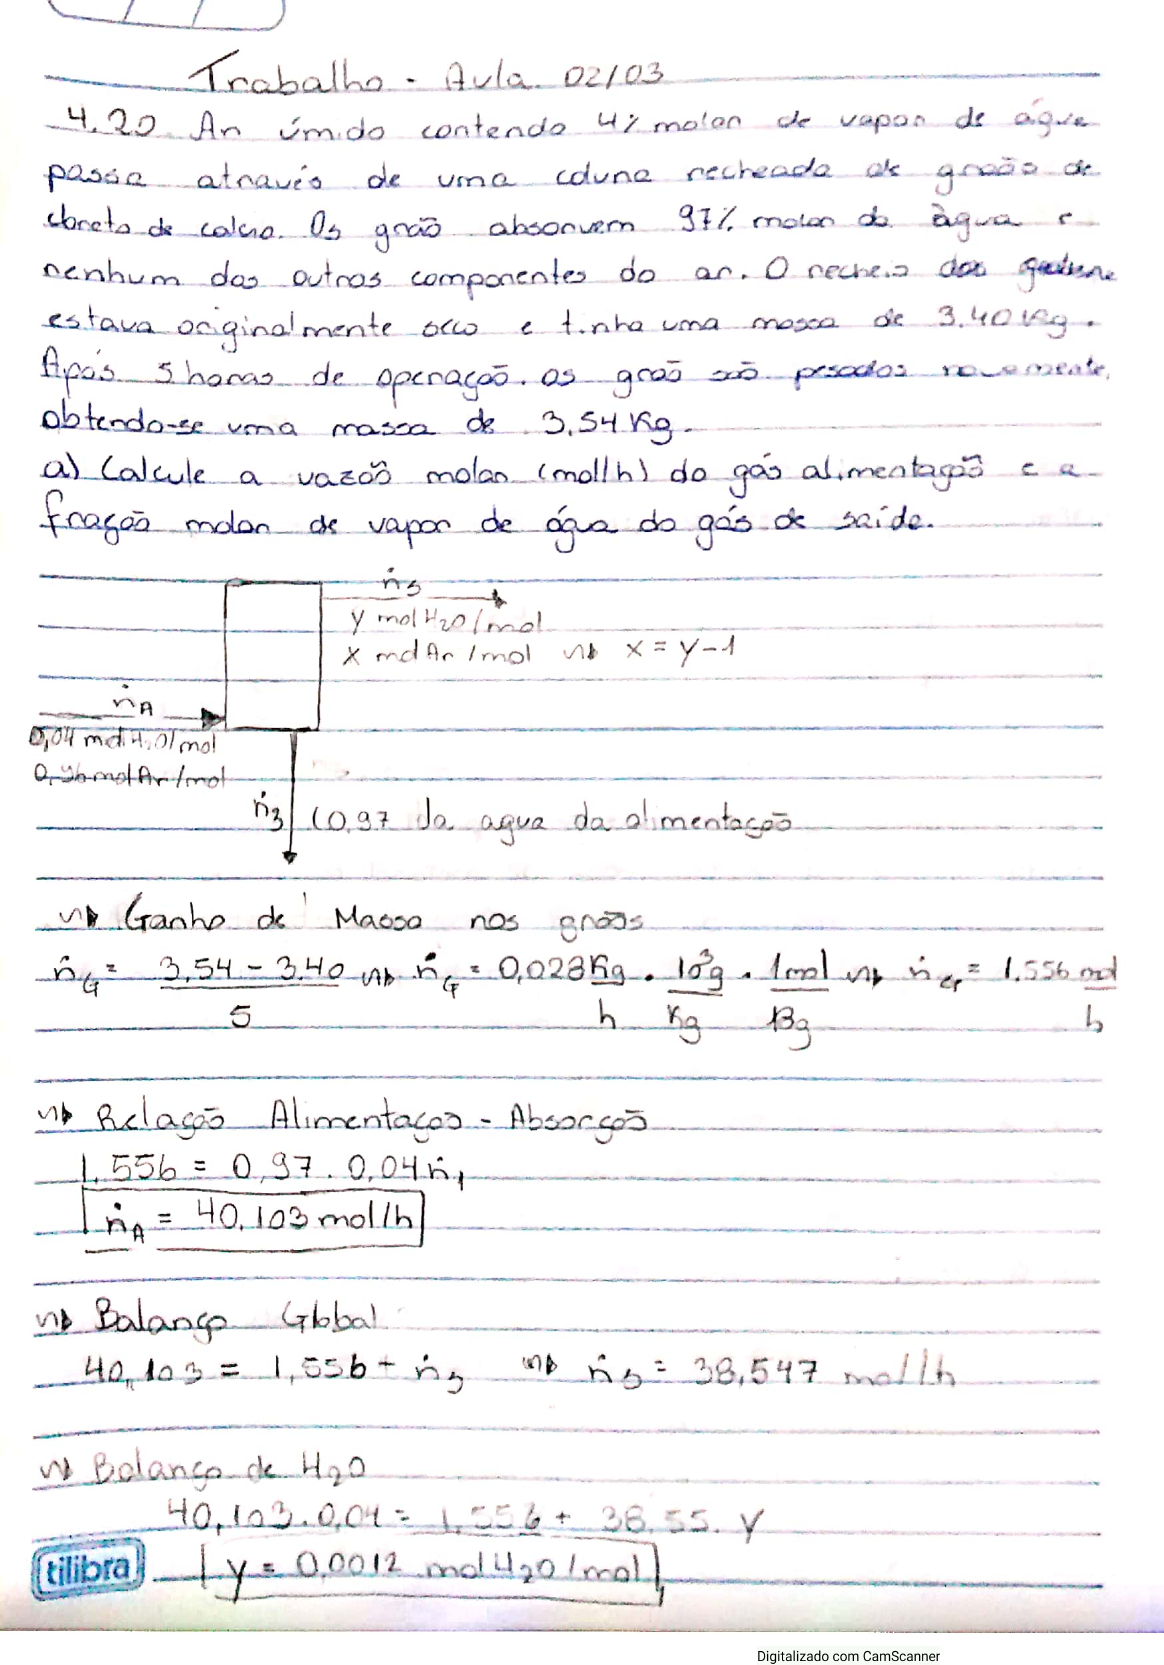 Trabalho - Aula 02/03
4.20 Ar úmido contendo 4% molar de vapor de água
passa através de uma coluna recheada de graõs de
cloreto de calcio. Os graõ absorvem 97% molar da àgua e
nenhum dos outros componentes do ar. O recheio dos
estava originalmente seco e tinha uma massa de 3.40 Kg.
Após 5 horas de operaçaõ. os graõ saõ pesados novamente,
obtendo-se uma massa de 3,54 Kg.
a) Calcule a vazaõ molar (mol/h) do gás alimentaçaõ e a
fraçaõ molar de vapor de água do gás de saída.
ṅ5
y mol H2O/mol
x mol Ar /mol x = y-1
ṅA
0,04 mol H2O/mol
0,96 mol Ar/mol
ṅ3 (0,97 da agua da alimentaçaõ
Ganho de Massa nos graõs
ṅG = 3,54 - 3.40 ṅG = 0,028 Kg . 10³g . 1mol ṅG = 1.556 mol
5 h Kg 18g h
Relaçaõ Alimentaçaõ - Absorçaõ
1,556 = 0,97 . 0,04 ṅ1
ṅA = 40,103 mol/h
Balanço Global
40,103 = 1,556 + ṅ5 ṅ5 = 38,547 mol/h
Balanço de H2O
40,103.0,04 = 1,556 + 38.55. y
y = 0,0012 mol H2O/mol
tilibra
Digitalizado com CamScanner